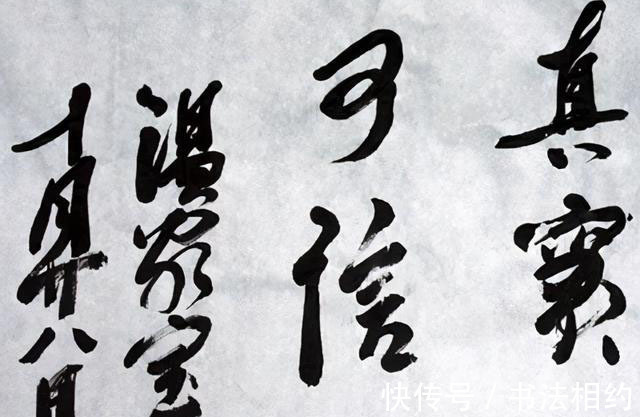 真實
可信
温家宝
十月廿八日
快传号/书法相约